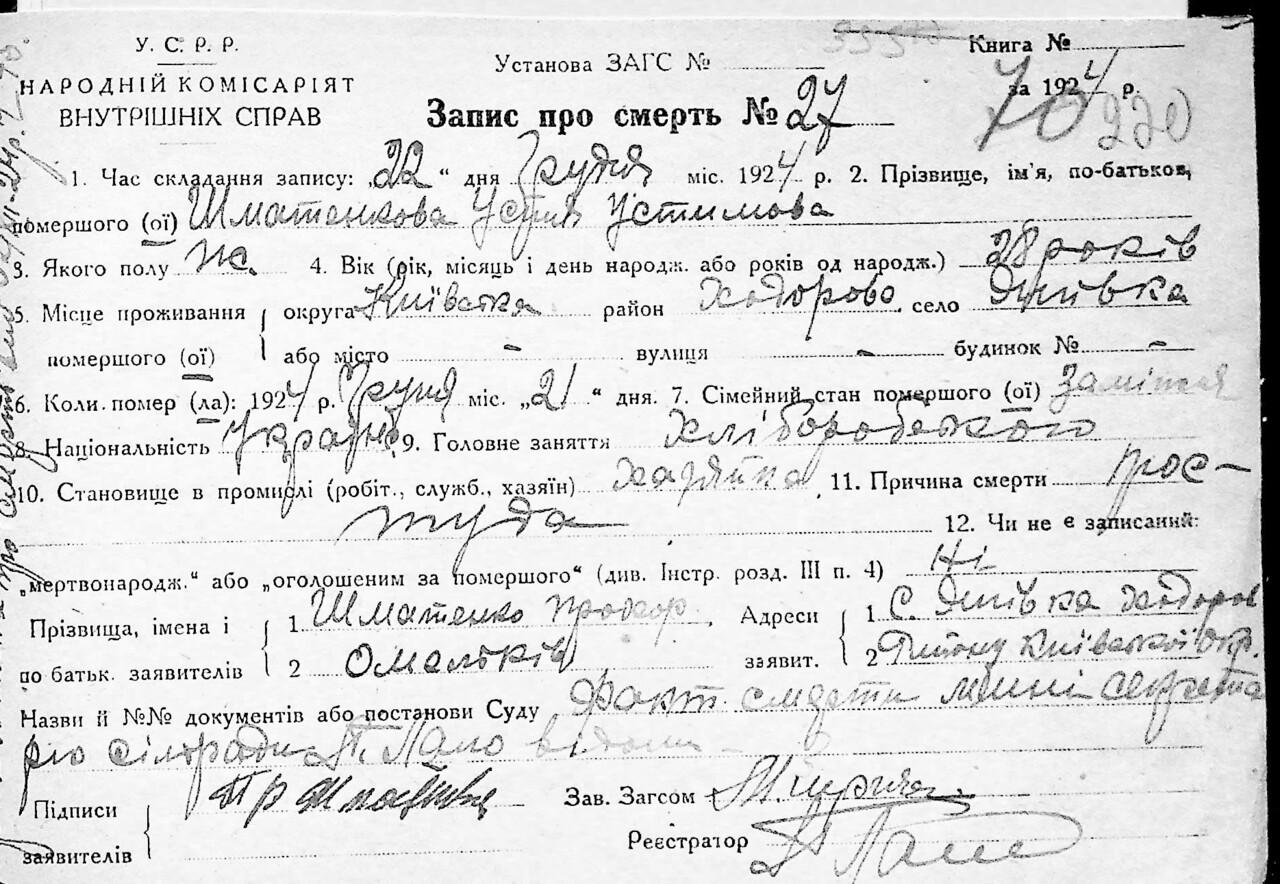 У. С. Р. Р.
НАРОДНІЙ КОМІСАРІЯТ
ВНУТРІШНІХ СПРАВ
Установа ЗАГС №
Книга №
за 1924 р.
70 220
Запис про смерть № 27
1. Час складання запису: „22“ дня Грудня міс. 1924 р. 2. Прізвище, ім'я, по-батькові,
помершого (ої) Шматенкова Устимова
3. Якого полу Ж. 4. Вік (рік, місяць і день народж. або років од народж.) 28 років
5. Місце проживання округа Київська район Ходорово село
помершого (ої) або місто - вулиця - будинок № -
6. Коли помер (ла): 1924 р. Грудня міс. „21“ дня. 7. Сімейний стан помершого (ої) Заміжня
8. Національність Україн. 9. Головне заняття Хліборобського
10. Становище в промислі (робіт., служб., хазяїн) Хазяйка 11. Причина смерти прос-
туда 12. Чи не є записаний:
„мертвонародж.“ або „оголошеним за помершого“ (див. Інстр. розд. III п. 4) Ні
Прізвища, імена і 1 Шматенко Прохор Адреси 1 С. Ходоров
по батьк. заявителів 2 Омельків заявит. 2 Району Київської Окр.
Назви й №№ документів або постанови Суду Факт смерти мині секрета
рю сілради відом
Підписи
заявителів
Зав. Загсом
Реєстратор